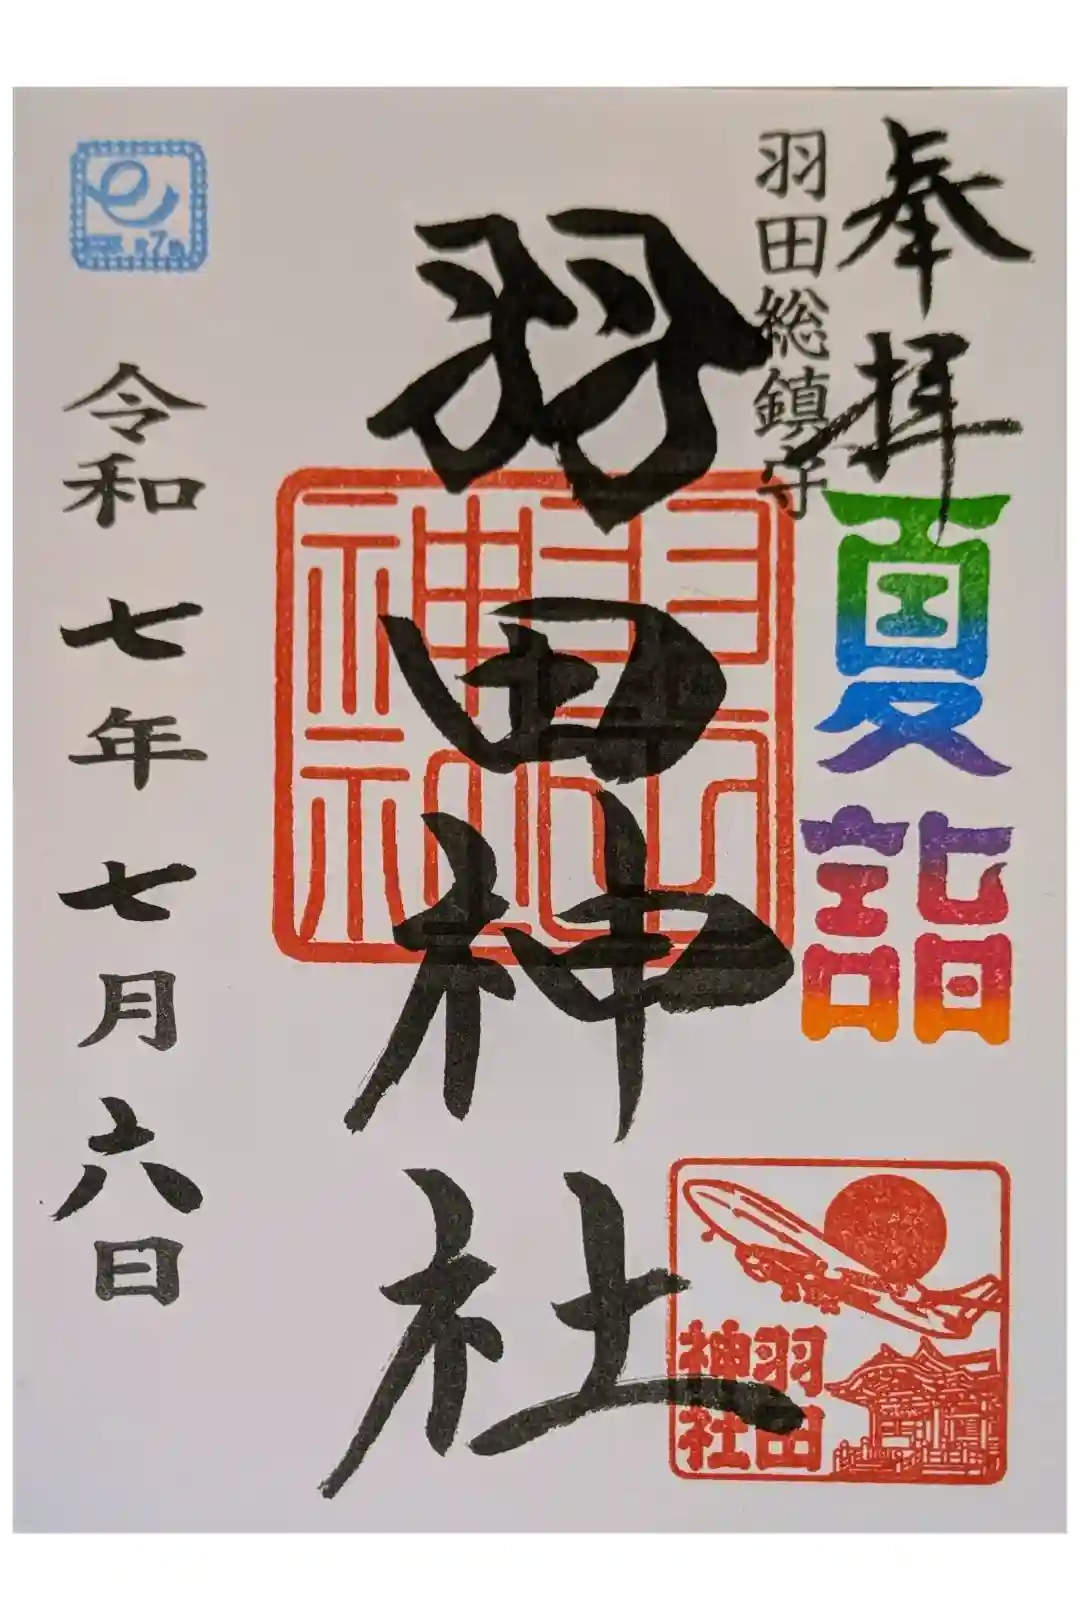 奉拝
羽田総鎮守
夏詣
羽田神社
羽田神社
羽田
神社
令和七年七月六日